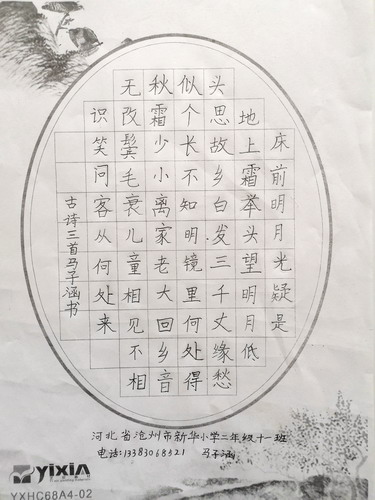 床前明月光疑是
地上霜举头望明月低
头思故乡白发三千丈缘愁
似个长不知明镜里何处得
秋霜少小离家老大回乡音
无改鬓毛衰儿童相见不相
识笑问客从何处来
古诗三首马子涵书
河北省沧州市新华小学二年级十一班
电话:13383068321 马子涵
yixin
YXHC68A4-02